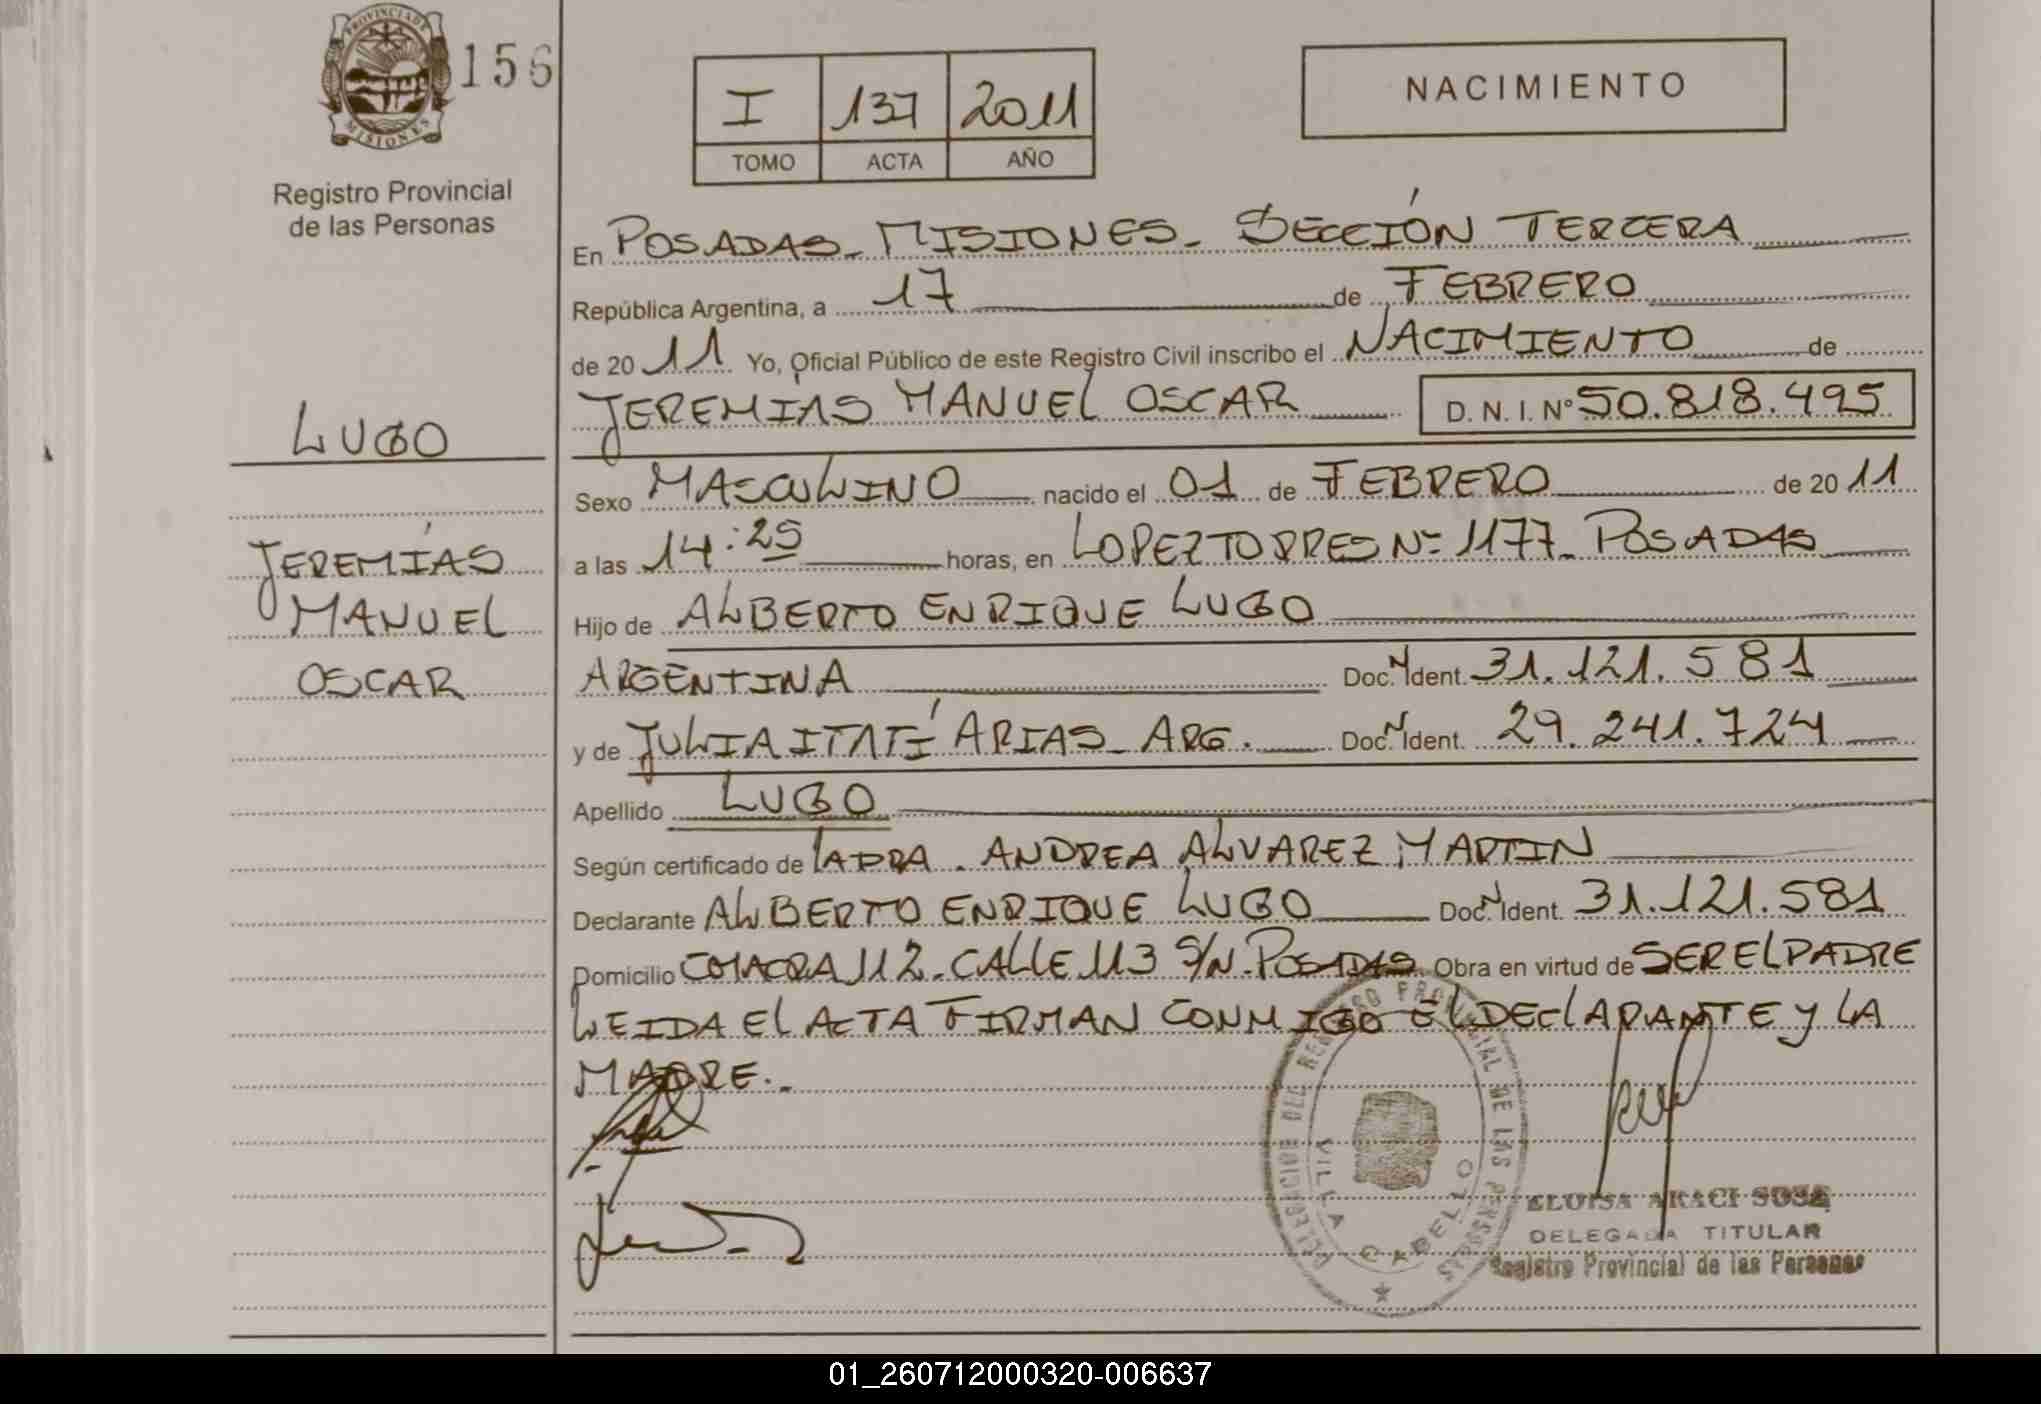 PROVINCIA DE
MISIONES
156
Registro Provincial
de las Personas
I 137 2011
TOMO ACTA AÑO
NACIMIENTO
En POSADAS - MISIONES - SECCIÓN TERCERA
República Argentina, a 17 de FEBRERO
de 20 11 Yo, Oficial Público de este Registro Civil inscribo el NACIMIENTO de
JEREMIAS MANUEL OSCAR D. N. I. N° 50.818.495
LUGO
Sexo MASCULINO nacido el 01 de FEBRERO de 20 11
JEREMÍAS
a las 14:25 horas, en LOPEZ TORRES Nº 1177 - POSADAS
MANUEL
Hijo de ALBERTO ENRIQUE LUGO
OSCAR
ARGENTINA Doc. N Ident. 31.121.581
y de JULIA ITATÍ ARIAS - ARG. Doc. N Ident. 29.241.724
Apellido LUGO
Según certificado de LA DRA. ANDREA ALVAREZ MARTIN
Declarante ALBERTO ENRIQUE LUGO Doc. N Ident. 31.121.581
Domicilio CHACRA 112 - CALLE 113 S/N - POSADAS Obra en virtud de SER EL PADRE
LEIDA EL ACTA FIRMAN CONMIGO EL DECLARANTE Y LA
MADRE. -
DELEGACION DEL REGISTRO PROVINCIAL DE LAS PERSONAS
VILLA CABELLO
ELOISA ARACI SOSA
DELEGADA TITULAR
Registro Provincial de las Personas
01_260712000320-006637